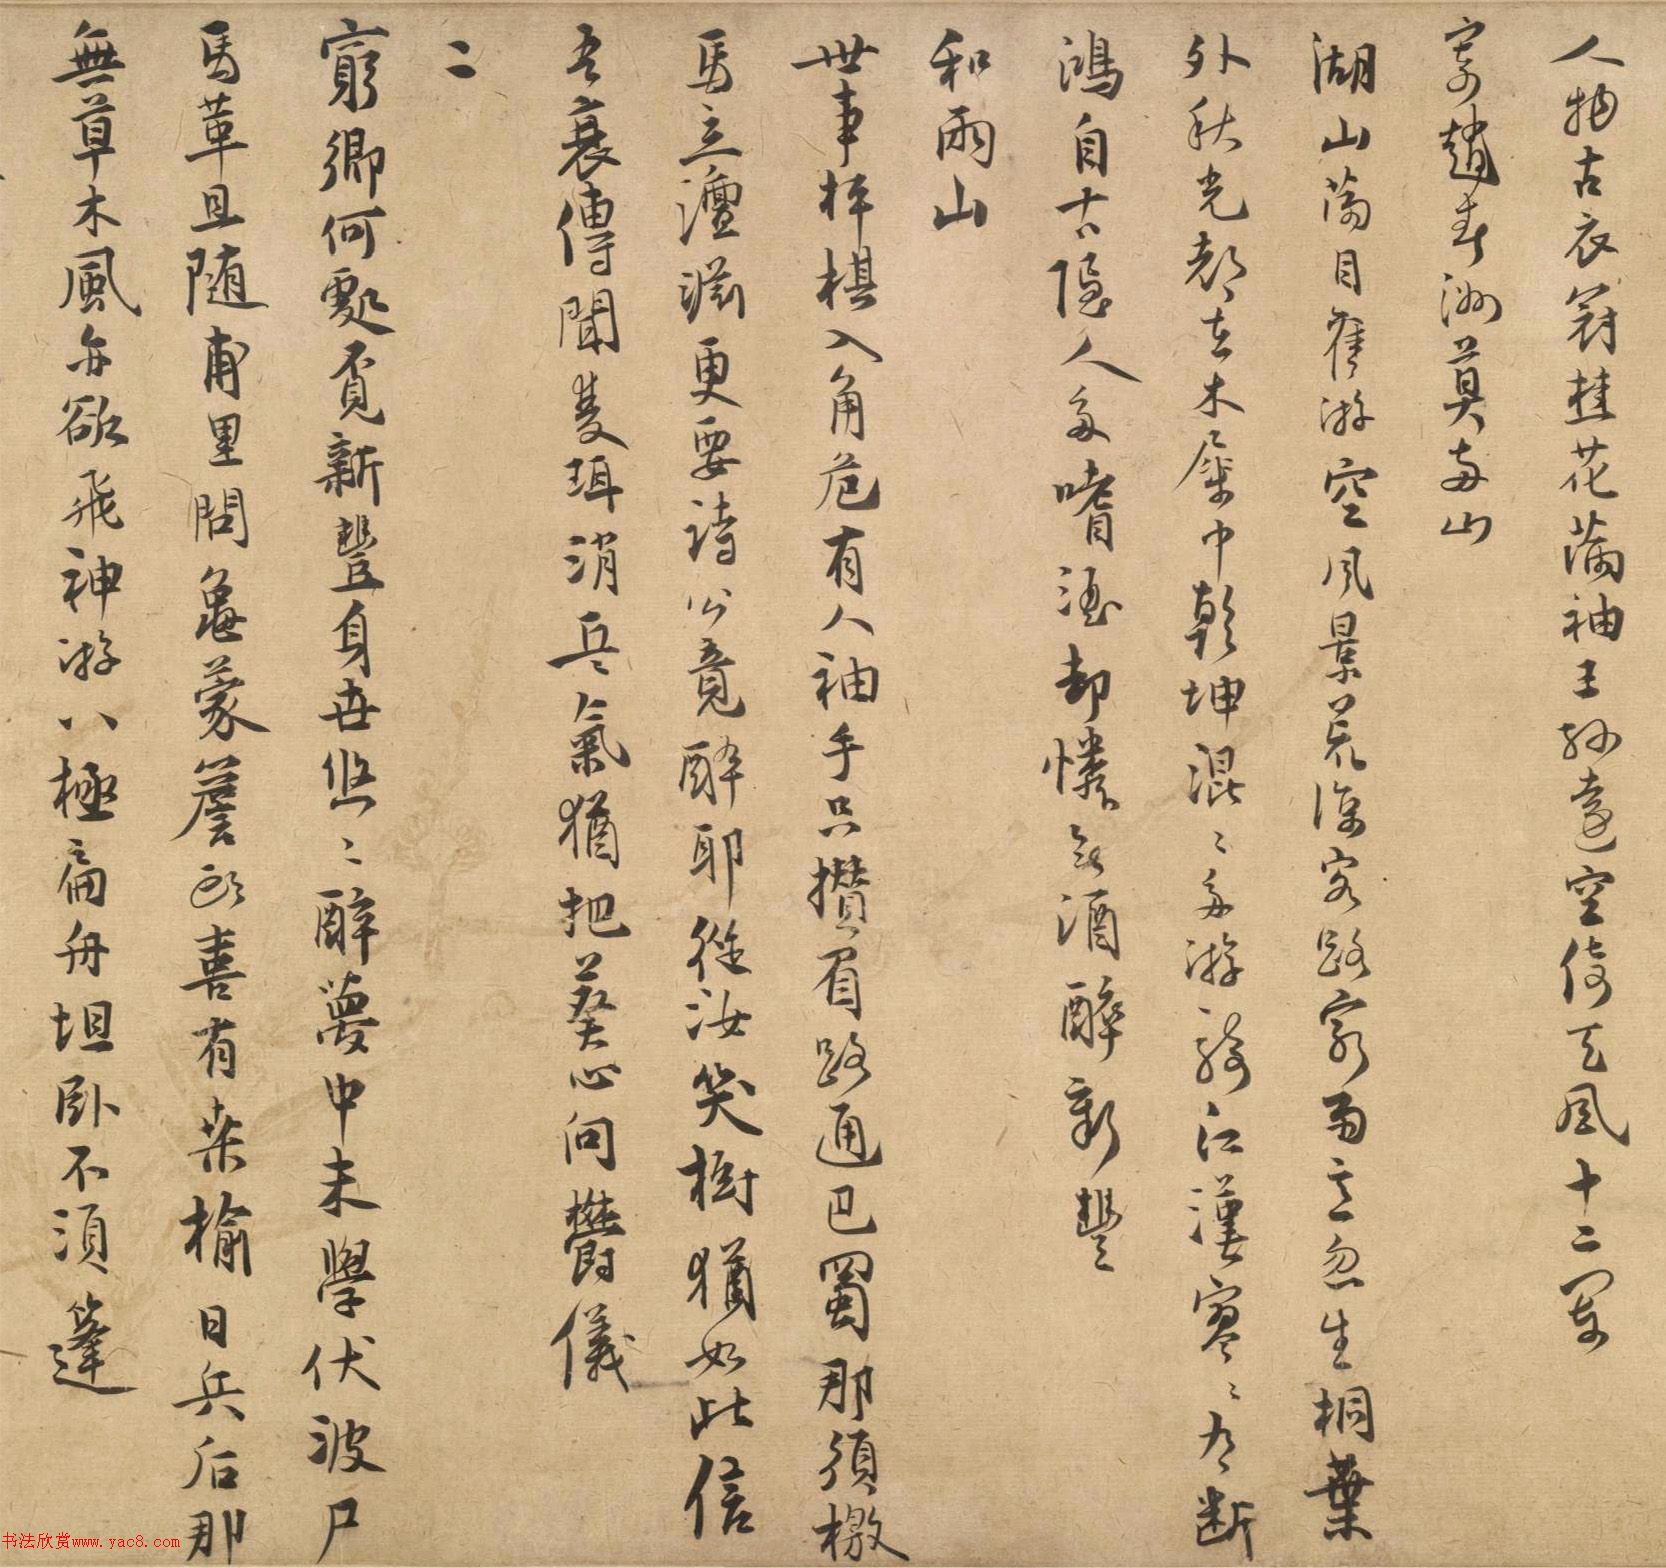 人物古衣冠桂花滿袖王孫遠空倚天風十二闌
寄趙春洲莫兩山
湖山滿目舊游空風景荒涼客路窮雨意忽生桐葉
外秋光都在木犀中乾坤混〻多游騎江漢寥〻有斷
鴻自古隱人多嗜酒却憐無酒醉新豐
和雨山
世事枰棋入角危有人袖手只攢眉路通巴蜀那須檄
馬立澶淵更要詩公竟醉耶從汝笑樹猶如此信
吾衰傳聞隻珥消兵氣猶把葵心向鬱儀
二
窮鄉何處覓新豐身世悠〻醉夢中未學伏波尸
馬革且隨甫里問龜蒙簷頭喜有桑榆日兵后那
無草木風亦欲飛神游八極扁舟坦卧不須篷
书法欣赏www.yac8.com